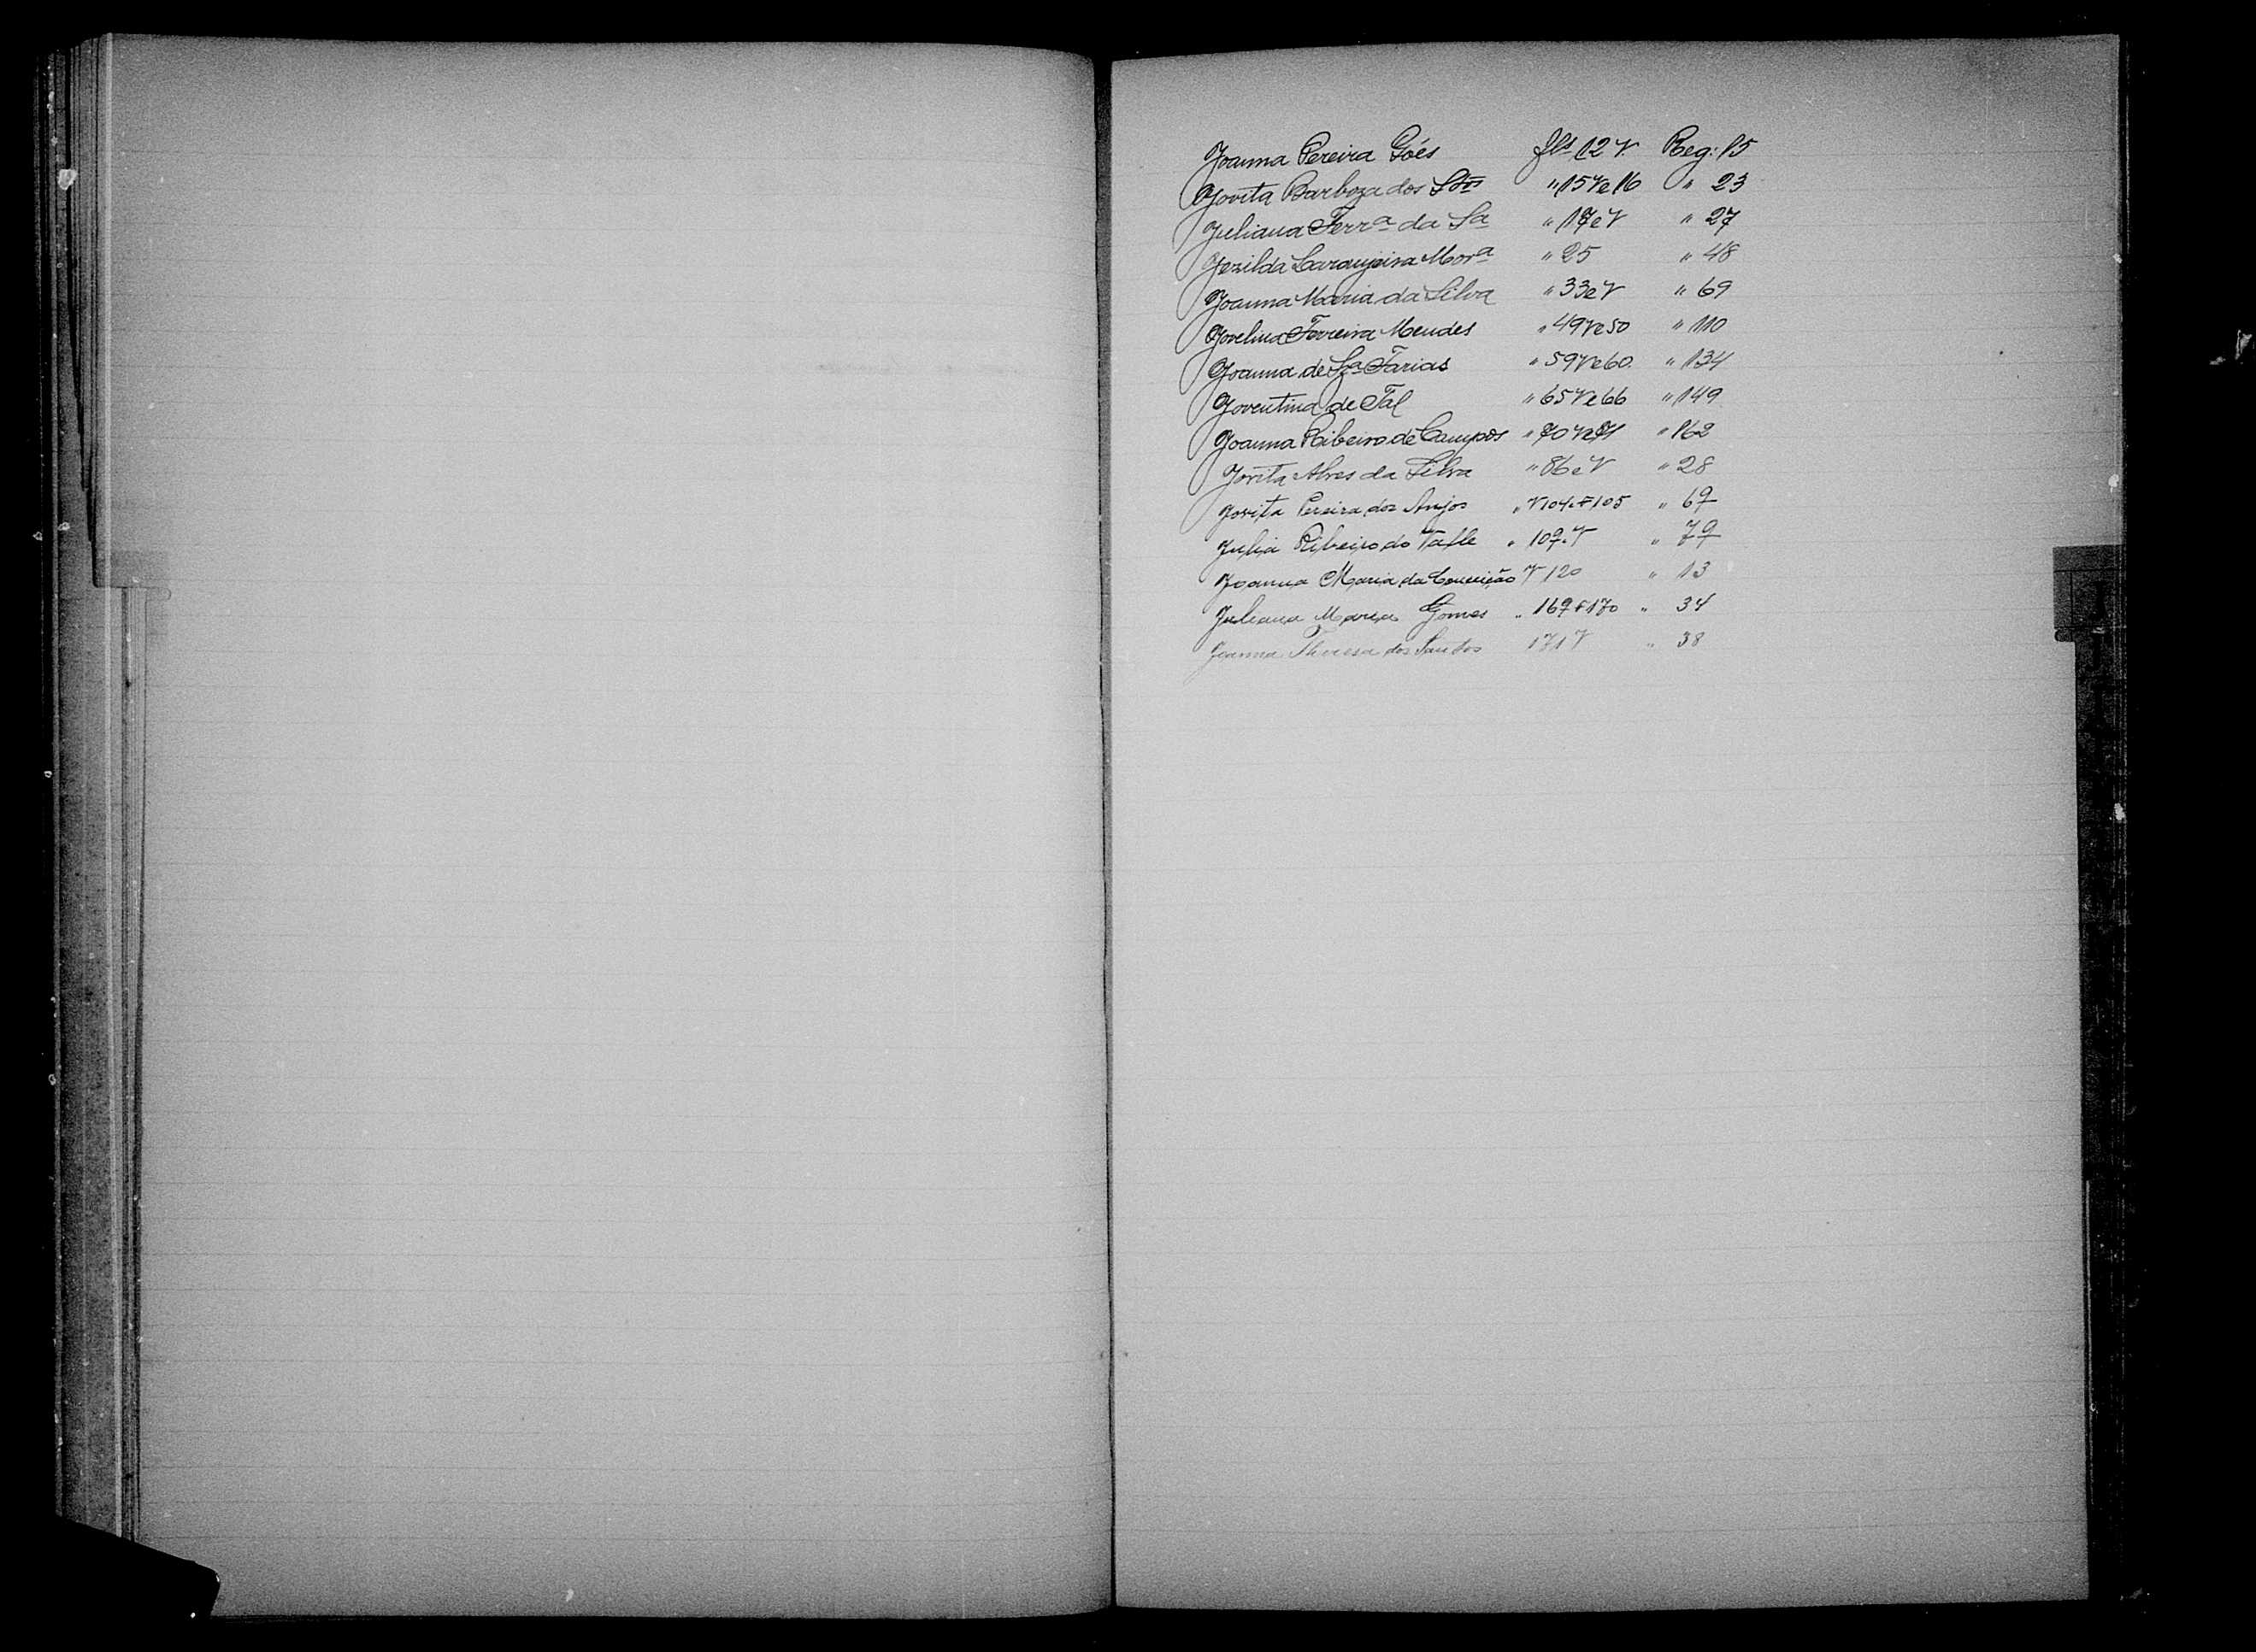 Joanna Pereira Góes fls 12 V. Reg: 15
Jovita Barboza dos Stos " 15 V e 16 " 23
Juliana Ferra da Sa " 17 e V " 27
Jezilda Laranjeira Mora " 25 " 48
Joanna Maria da Silva " 33 e V " 69
Jovelina Ferreira Mendes " 49 V e 50 " 110
Joanna de Sza Farias " 59 V e 60. " 134
Joventina de Tal " 65 V e 66 " 149
Joanna Ribeiro de Campos " 70 V e 71 " 162
Jovita Alves da Silva " 86 e V " 28
Jovita Pereira dos Anjos " V 104 e F 105 " 67
Julia Ribeiro do Valle " 109. V " 79
Joanna Maria da Conceição V 120 " 13
Juliana Maria Gomes " 169 F 170 " 34
Joanna Theresa dos Santos 171 V " 38